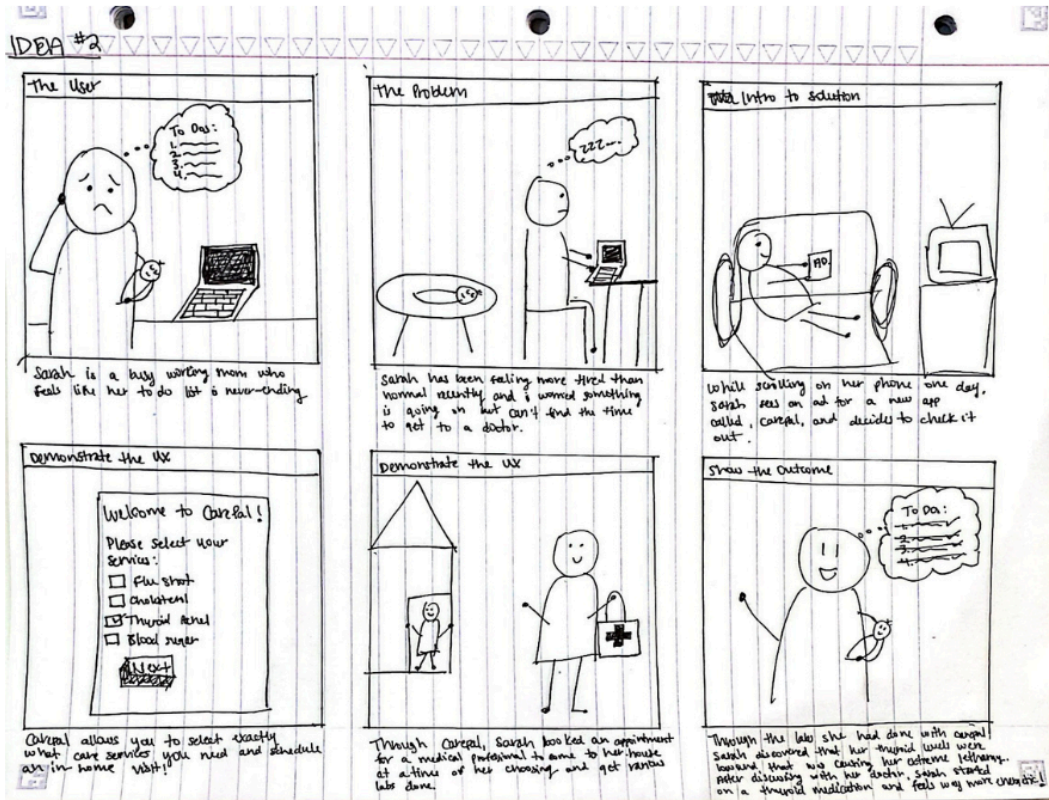 IDEA #2
The User
To Dos:
1.
2.
3.
4.
Sarah is a busy working mom who
feels like her to do list is never-ending
The Problem
zzz...
Sarah has been feeling more tired than
normal recently and is worried something
is going on but can't find the time
to get to a doctor.
Intro to solution
AD.
While scrolling on her phone one day,
Sarah sees an ad for a new app
called, carepal, and decides to check it
out.
Demonstrate the UX
Welcome to CarePal!
Please select your
services:
Flu shot
Cholesterol
Thyroid Panel
Blood sugar
Next
Carepal allows you to select exactly
what care services you need and schedule
an in home visit!
Demonstrate the UX
Through Carepal, Sarah booked an appointment
for a medical professional to come to her house
at a time of her choosing and get various
labs done.
Show the Outcome
To Do:
1.
2.
3.
4.
Through the labs she had done with carepal
Sarah discovered that her thyroid levels were
low and that was causing her extreme lethargy.
After discussing with her doctor, Sarah started
on a thyroid medication and feels way more energetic!